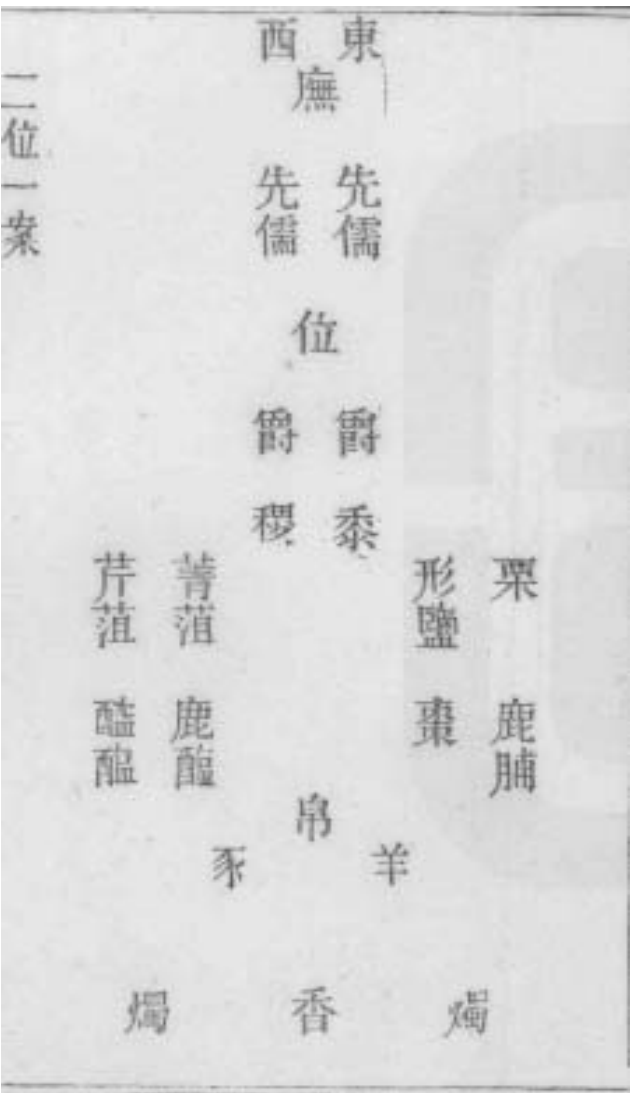 東西
廡
先儒 先儒
位
爵 爵
黍 稷
栗 形鹽 菁菹 芹菹
鹿脯 棗 鹿醢 醓醢
帛
羊 豕
燭 香 燭
二位一案